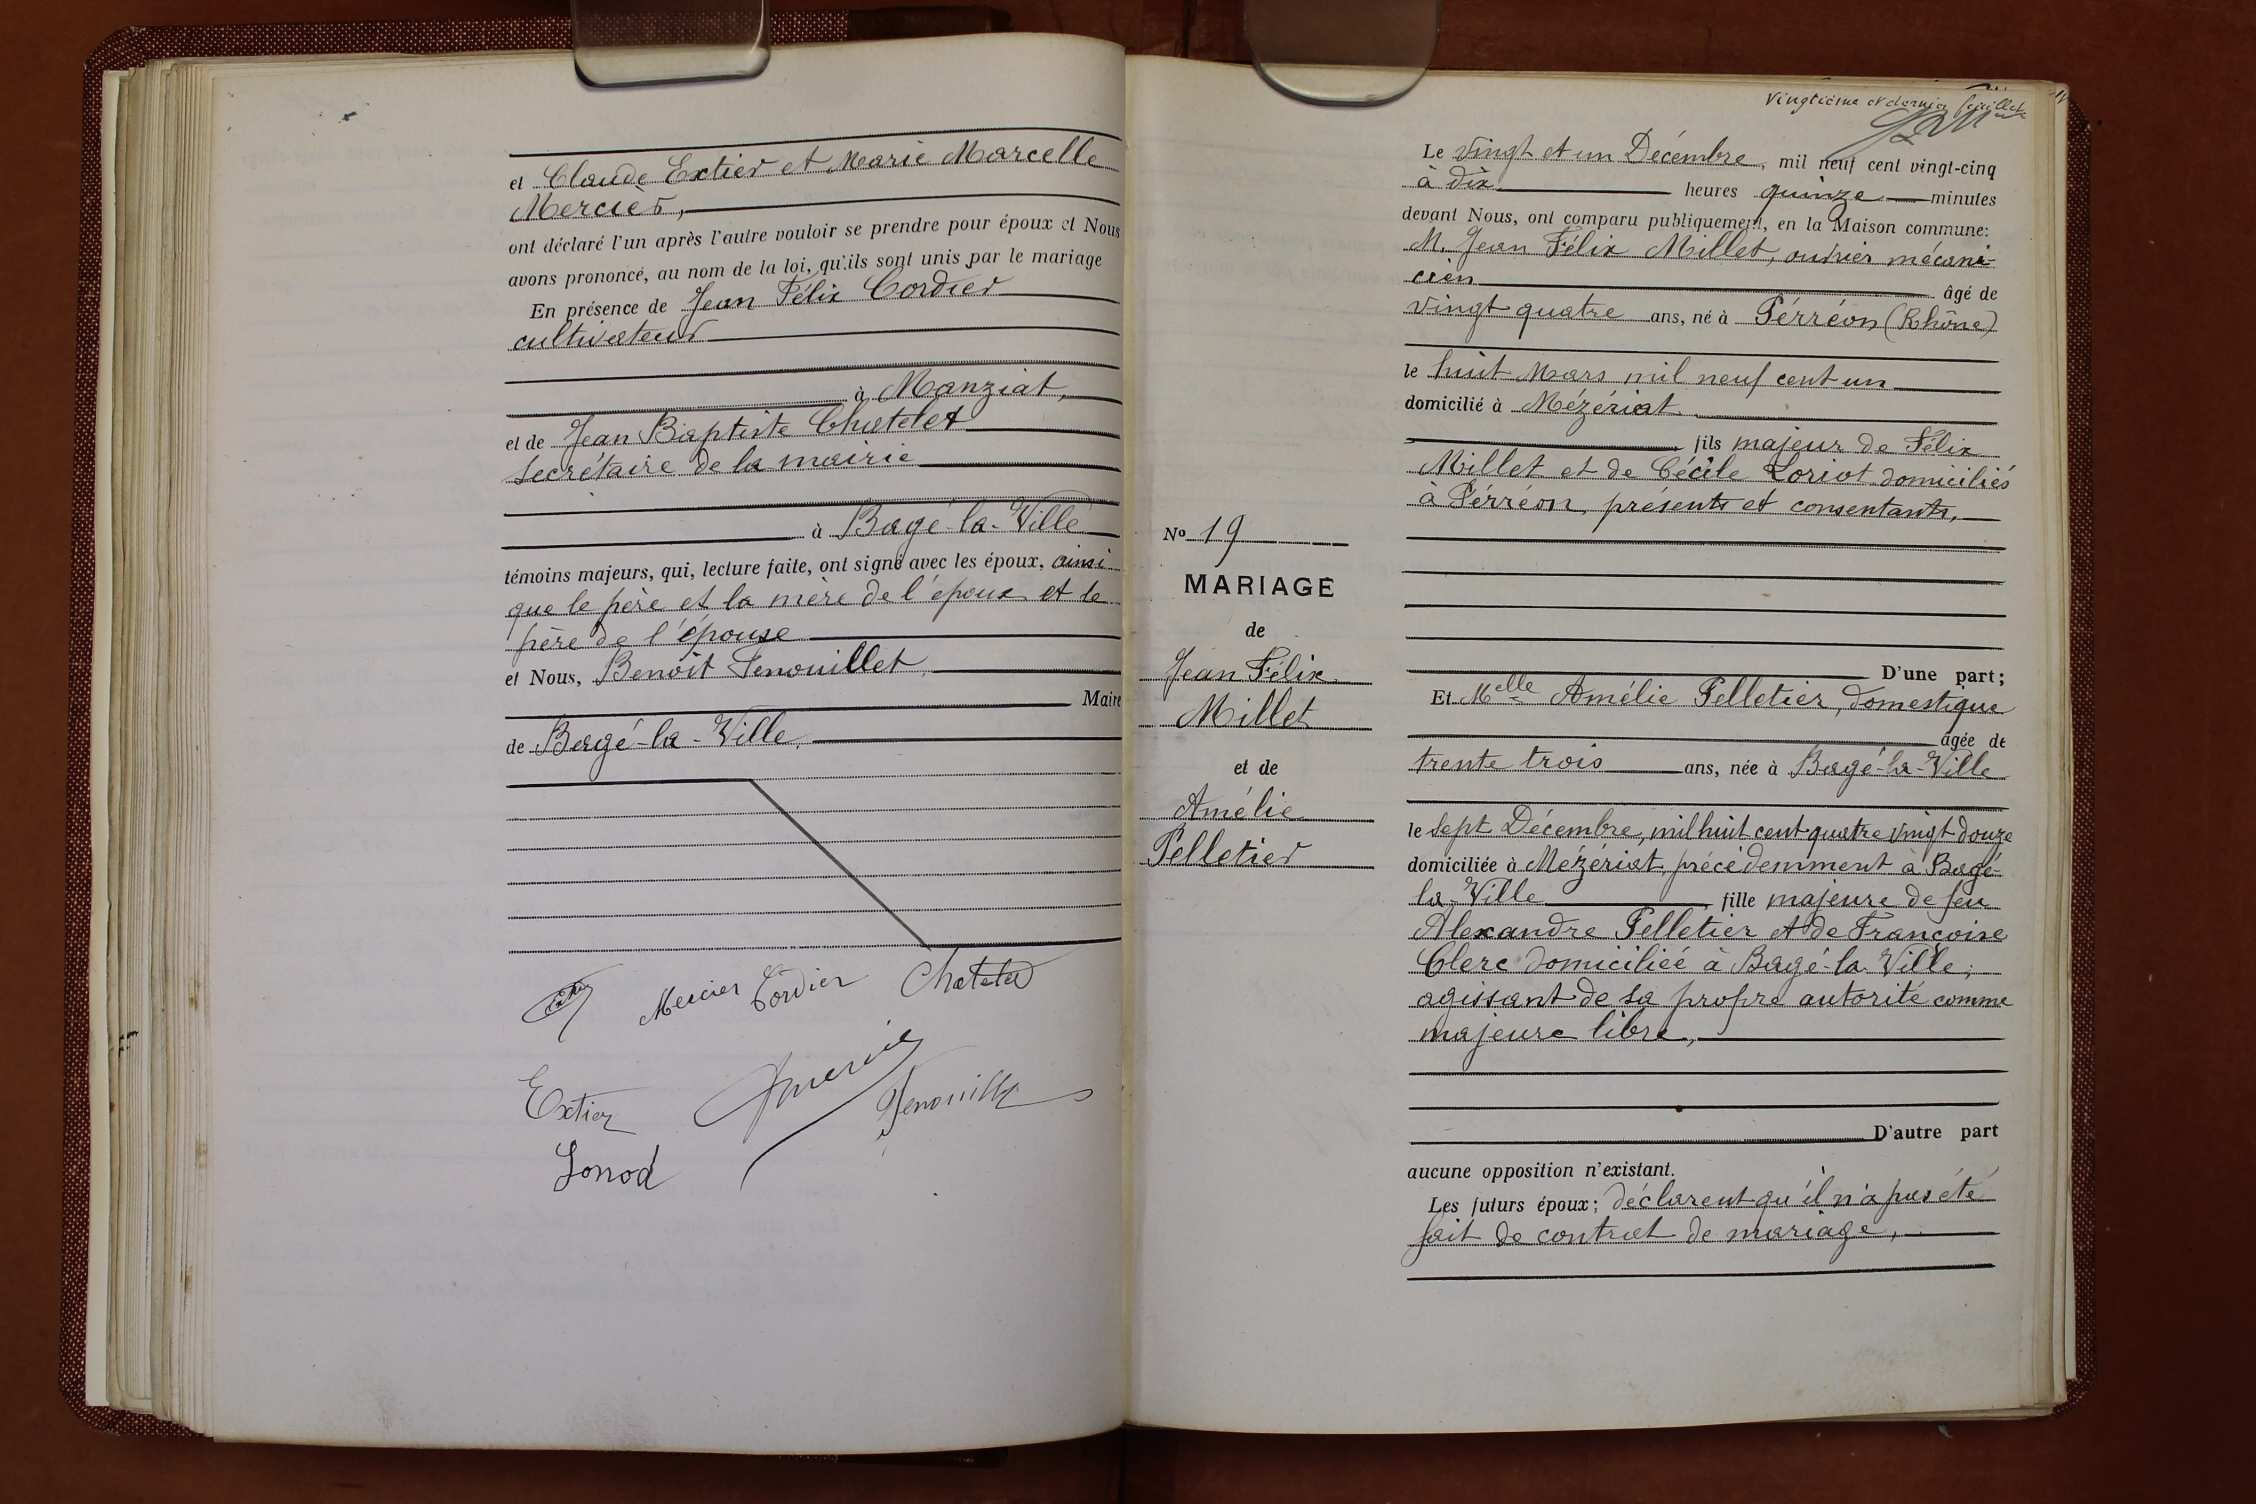 et Claude Extier et Marie Marcelle
Mercier,
ont déclaré l'un après l'autre vouloir se prendre pour époux et Nous
avons prononcé, au nom de la loi, qu'ils sont unis par le mariage
En présence de Jean Félix Cordier
cultivateur
à Manziat,
et de Jean Baptiste Chatelet
secrétaire de la mairie
à Bagé-la-Ville
témoins majeurs, qui, lecture faite, ont signé avec les époux, ainsi
que le père et la mère de l'époux et le
père de l'épouse
et Nous, Benoît Fenouillet,
Maire
de Bagé-la-Ville,
Mercier Cordier Chatelet
Extier
Fenouillet
Jonod
Vingtième et dernier feuillet
Le vingt et un Décembre, mil neuf cent vingt-cinq
à dix heures quinze minutes
devant Nous, ont comparu publiquement, en la Maison commune:
M. Jean Félix Millet, ouvrier mécani-
cien âgé de
vingt quatre ans, né à Pérréon (Rhône)
le huit Mars mil neuf cent un
domicilié à Mézériat
fils majeur de Félix
Millet et de Cécile Loriot domiciliés
à Pérréon, présents et consentants,
D'une part;
Et Melle Amélie Pelletier, domestique
âgée de
trente trois ans, née à Bagé-la-Ville
le sept Décembre, mil huit cent quatre vingt douze
domiciliée à Mézériat, précédemment à Bagé-
la-Ville fille majeure de feu
Alexandre Pelletier et de Françoise
Clerc domiciliée à Bagé-la-Ville;
agissant de sa propre autorité comme
majeure libre,
D'autre part
aucune opposition n'existant.
Les futurs époux; déclarent qu'il n'a pas été
fait de contrat de mariage,
No 19
MARIAGE
de
Jean Félix
Millet
et de
Amélie
Pelletier